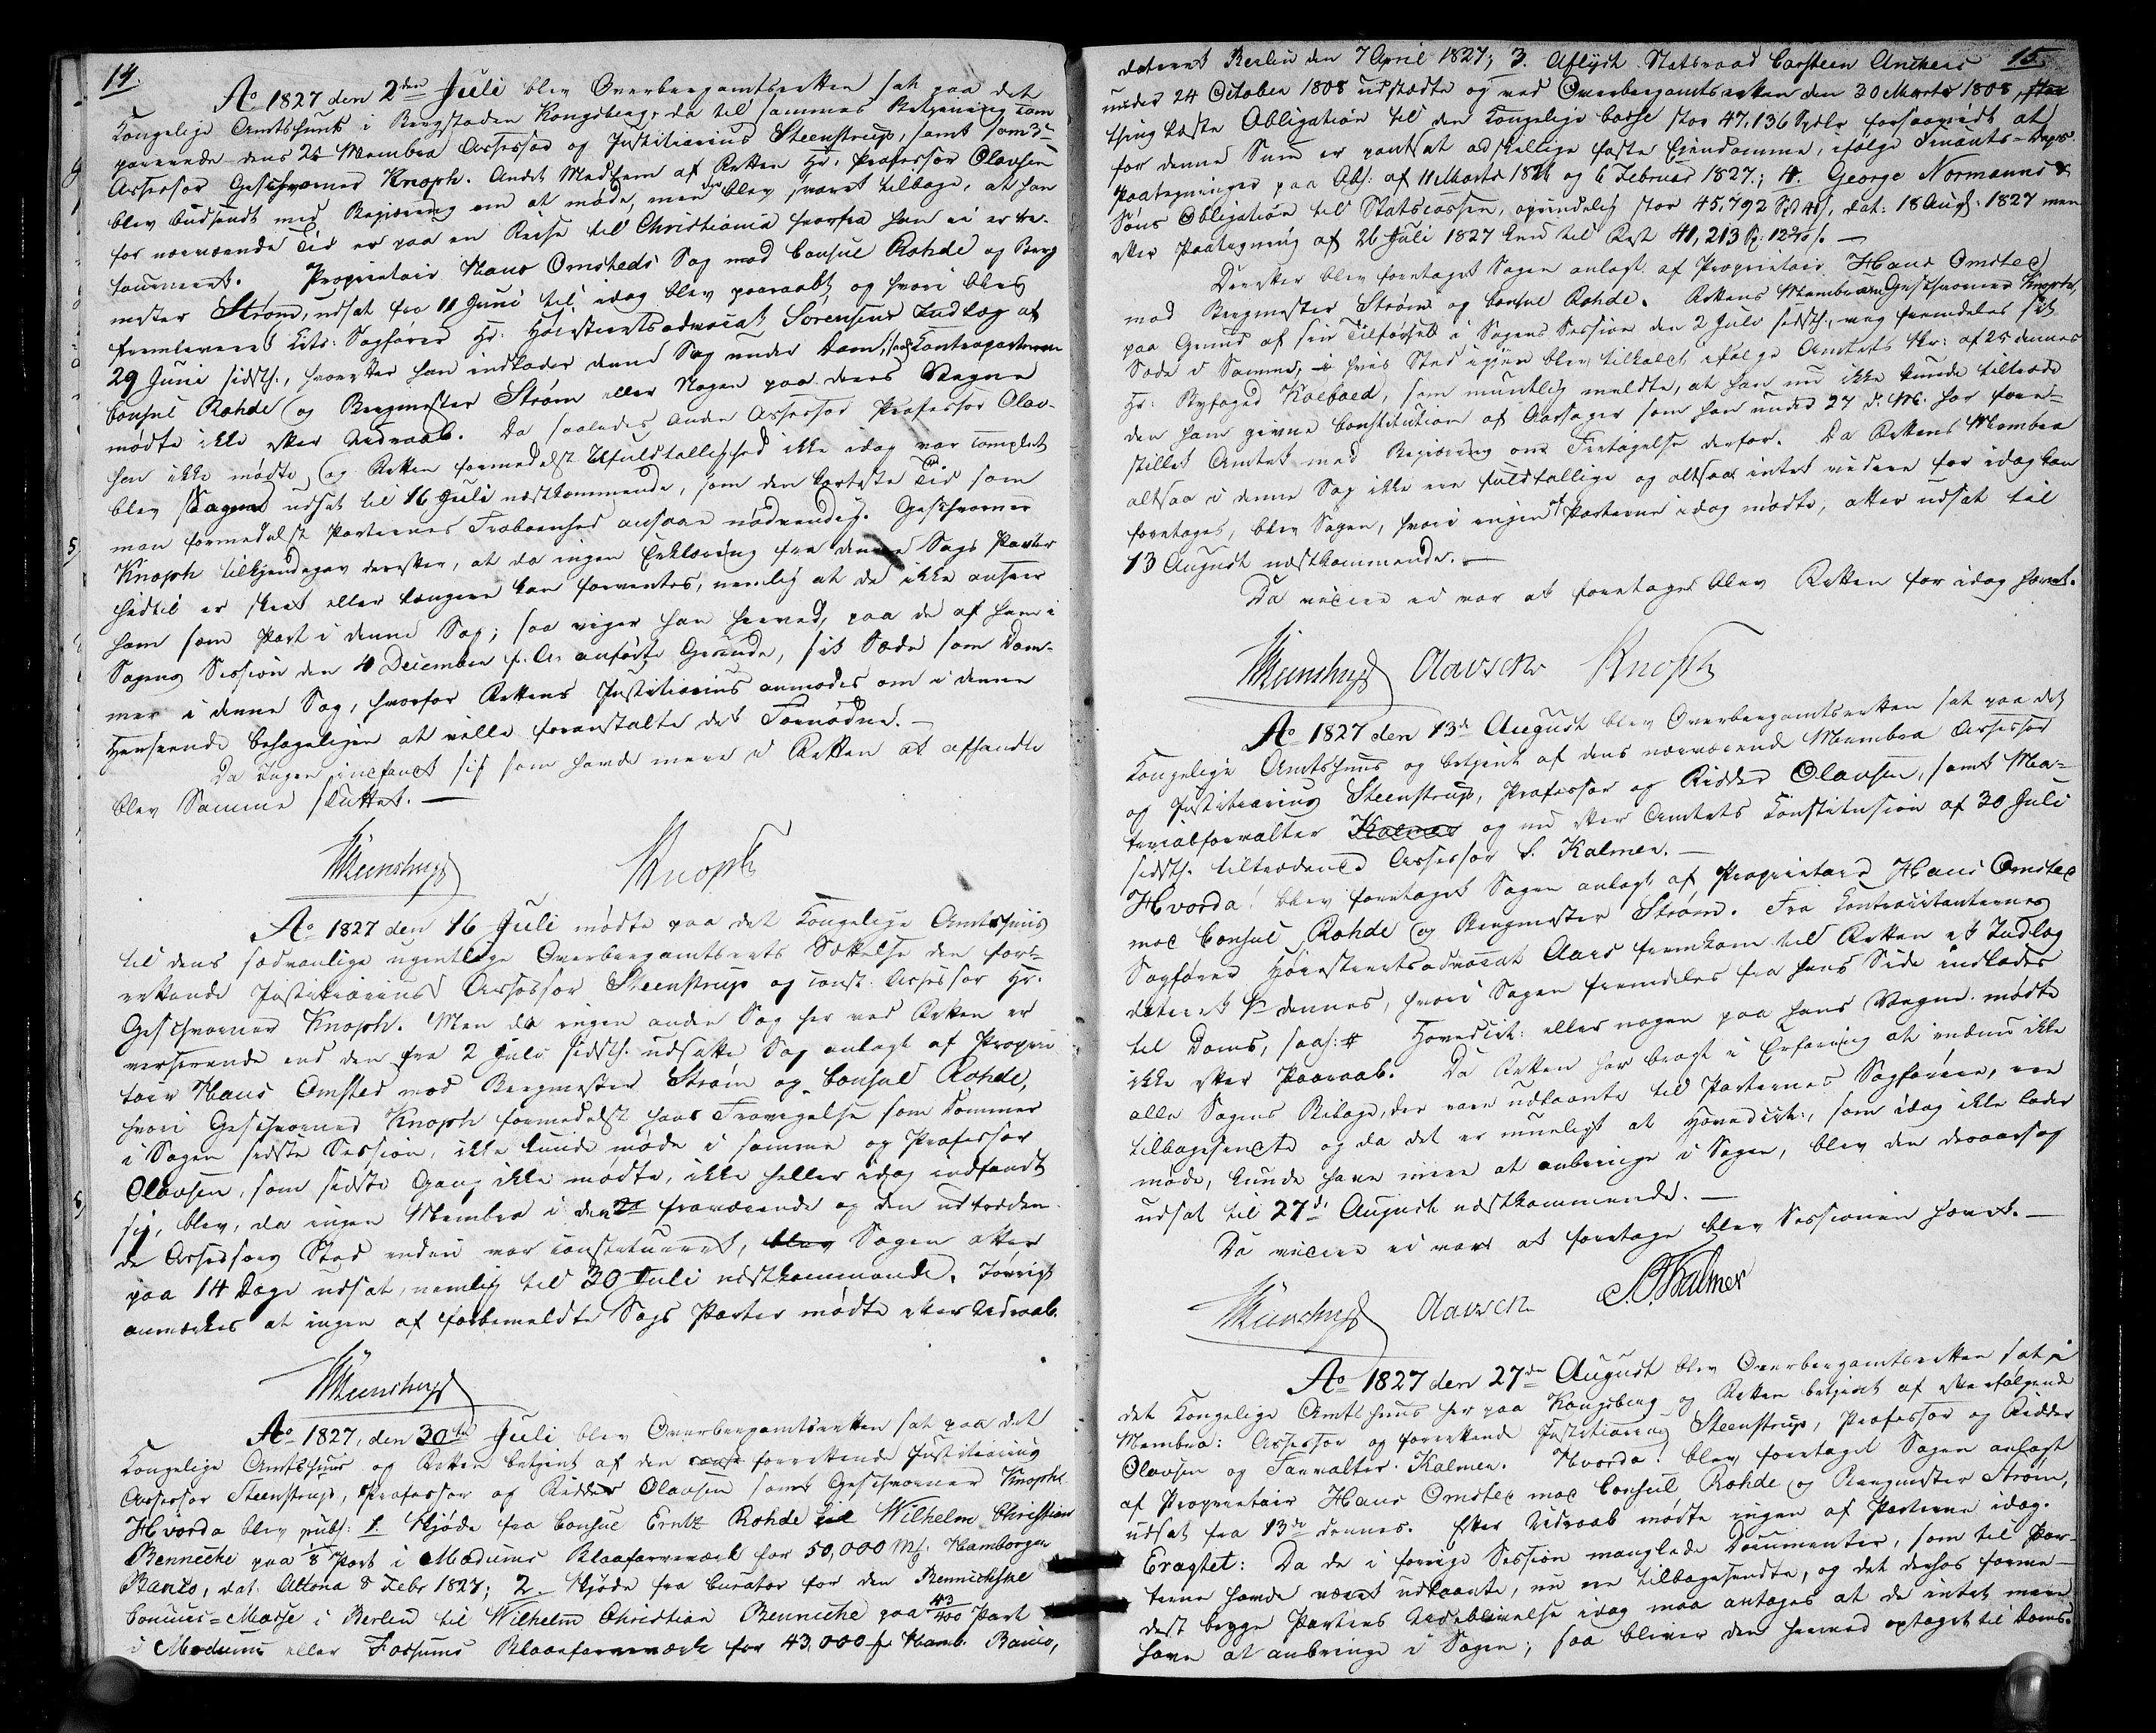 14.
Ao 1827 den 2den Juli blev Overbergamtsretten sat paa det
Kongelige Amtshuus i Bergstaden Kongsberg, da til sammes Betjening kom
dens Membra Assessor og Justitiarius Steenstrup, samt som
Assessor Geschworner Knoph. Andet Medlem af Retten Hr. Professor Olavsen
blev budsendt med Begjæring om at møde, men der blev svaret tilbage, at han
for nærværende Tid er paa en Reise til Christiania hvorfra han ei er re-
tourneret. Proprietair Hans Omsteds Sag mod Consul Rohde og Berg
mester Strøm, udsat fra 11 Juni til idag blev paaraabt og hvori blev
fremleveret Cits: Sagfører Hr: Høiesteretsadvocat Sørensens Indlæg af
29 Juni sidstl., hvorefter han indlader denne Sag under Dom; Contraparterne
Consul Rohde og Bergmester Strøm eller Nogen paa deres Vegne
mødte ikke efter Udraab. Da saaledes anden Assessor Professor Olav-
sen ikke mødte og Retten formedelst Ufuldtallighed ikke idag var complet
blev Sagen udsat til 16 Juli næstkommende, som den korteste Tid som
man formedelst Parternes Fraboenhed ansaae nødvendig. Geschworner
Knoph tilkjendegav derefter, at da ingen Erklæring fra denne Sags Parter
hidtil er skeet eller længere kan forventes, nemlig at de ikke ansee
ham som Part i denne Sag; saa viger han herved, paa de af ham i
Sagens Session den 4 December f. A. anførte Grunde, sit Sæde som Dom-
mer i denne Sag, hvorfor Rettens Justitiarius anmodes om i denne
Henseende behageligen at ville foranstalte det Fornødne.—
Da Ingen indfandt sig som havde mere i Retten at afhandle
blev Samme sluttet.—
Steenstrup Knoph
Ao 1827 den 16 Juli mødte paa det Kongelige Amtshuus
til dens sædvanlige ugentlige Overbergamtsrets Sættelse den for-
rettende Justitiarius Assessor Steenstrup og const. Assessor Hr.
Geschworner Knoph. Men da ingen anden Sag her ved Retten er
verserende end den fra 2 Juli sidstl. udsatte Sag anlagt af Proprie
tair Hans Omsted mod Bergmester Strøm og Consul Rohde,
hvori Geschworner Knoph formedelst hans Fravigelse som Dommer
i Sagen sidste Session, ikke kunde møde i samme og Professor
Olavsen, som sidste Gang ikke mødte, ikke heller idag indfandt
sig, blev, da ingen Membra i den fraværende og den udtræden
de Assessors Sted endnu var constitueret, blev Sagen atter
paa 14 Dage udsat, nemlig til 30 Juli næstkommende. Iøvrigt
anmærkes at ingen af forbemeldte Sags Parter mødte efter Udraab.
Steenstrup
Ao 1827, den 30te Juli blev Overbergamtsretten sat paa det
Kongelige Amtshuus og Retten betjent af den const forrettende Justitiarius
Assessor Steenstrup, Professor og Ridder Olavsen samt Geschworner Knoph
Hvorda blev publ: 1. Skjøde fra Consul Rohde til Wilhelm Christian
Bennecke paa 1/8 Part i Modums Blaafarveværk for 50,000 Mk. Hamborger
Banco, dat. Altona 8 Febr 1827; 2. Skjøde fra Curator for den Benneckske
Concurs-Masse i Berlin til Wilhelm Christian Bennecke paa 43/400 Part
i Modums eller Fossums Blaafarveværk for 43,000 Hamb. Banco,
15.
dateret Berlin den 7 April 1827; 3. Aflyst Statsraad Carsteen Ankers
under 24 October 1808 udstædte og ved Overbergamtsretten den 30 Marts 1808,
thinglæste Obligation til den Kongelige Casse stor 47,136 Spdlr forsaavidt at
for denne Sum er pantsat adskellige faste Ejendomme, ifølge Finants-Dept
Paategninger paa Obl: af 11 Marts og 6 Februar 1827.; 4. George Normanns &
Søns Obligation til Statscassen, oprindelig stor 45,792 Spd, dat: 18 Aug: 1827 men
efter Paategning af 26 Juli 1827 kun til Rest 41,213 Sp: —
Derefter blev foretaget Sagen anlagt af Proprietair Hans Omsted
mod Bergmester Strøm og Consul Rohde. Rettens Membrum Geschworner Knoph,
paa Grund af sin Tilførsel i Sagens Session den 2 Juli sidstl., veg fremdeles sit
Sæde i Samme, i hvis Sted igjen blev tilkaldt ifølge Amtets Skr: af 25 dennes
Hr: Byfoged Kolbæd, som mundtlig meldte, at han nu ikke kunde tiltræde
den ham givne Constitution af Aarsager som han under 27 d. M. har fore-
stillet Amtet med Begjæring om Fritagelse derfor. Da Rettens Membra
altsaa i denne Sag ikke ere fuldtallige og altsaa intet videre for idag kan
foretages, blev Sagen, hvori ingen af Parterne idag mødte, atter udsat til
13 August næstkommende.—
Da videre ei var at foretage blev Retten for idag hævet.
Steenstrup Olavsen Knoph
Ao 1827 den 13de August blev Overbergamtsretten sat paa det
Kongelige Amtshuus og betjent af dens nærværende Membra Assessor
og Justitiarius Steenstrup, Professor og Ridder Olavsen, samt Ma-
terialforvalter Kalmer og nu efter Amtets Constitution af 30 Juli
sidstl. tiltrædende Assessor S. Kalmer.—
Hvorda! blev foretaget Sagen anlagt af Proprietær Hans Omsted
mod Consul Rohde og Bergmester Strøm. Fra Contracitanternes
Sagfører Høiesteretsadvocat Aars fremkom til Retten et Indlæg
dateret dennes, hvori Sagen fremdeles fra hans Side indlades
til Doms, saal: Hovedcit: eller nogen paa hans Vegne mødte
ikke efter Paaraab. Da Retten har bragt i Erfaring at endnu ikke
alle Sagens Bilage, der vare udlaante til Parternes Sagførere, ere
tilbagesendte og da det er mueligt at Hovedcit:, som idag ikke lader
møde, kunde have mere at anbringe i Sagen, blev den desaarsag
udsat til 27de August næstkommende.—
Da videre ei var at foretage blev Sessionen hævet.—
Steenstrup Olavsen S. Kalmer
Ao 1827 den 27de August blev Overbergamtsretten sat i
det Kongelige Amtshuus her paa Kongsberg og Retten betjent af efterfølgende
Membra: Assessor og forrettende Justitiarius Steenstrup, Professor og Ridder
Olavsen og Forvalter Kalmer. Hvorda! blev foretaget Sagen anlagt
af Proprietair Hans Omsted mod Consul Rohde og Bergmester Strøm,
udsat fra 13de dennes. Efter Udraab mødte ingen af Parterne idag.
Eragtet: Da de i forrige Session manglede Documenter, som til Par-
terne havde været udlaante, nu ere tilbagesendte, og det derhos forme-
delst begge Partens Udeblivelse idag maa antages at de intet mere
have at anbringe i Sagen; saa bliver den herved optaget til Doms.